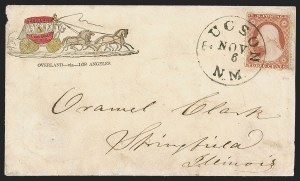 OVERLAND—via—LOS ANGELES.
TUCSON
NOV
6
N.M
Oramel Clark
Springfield
Illinois